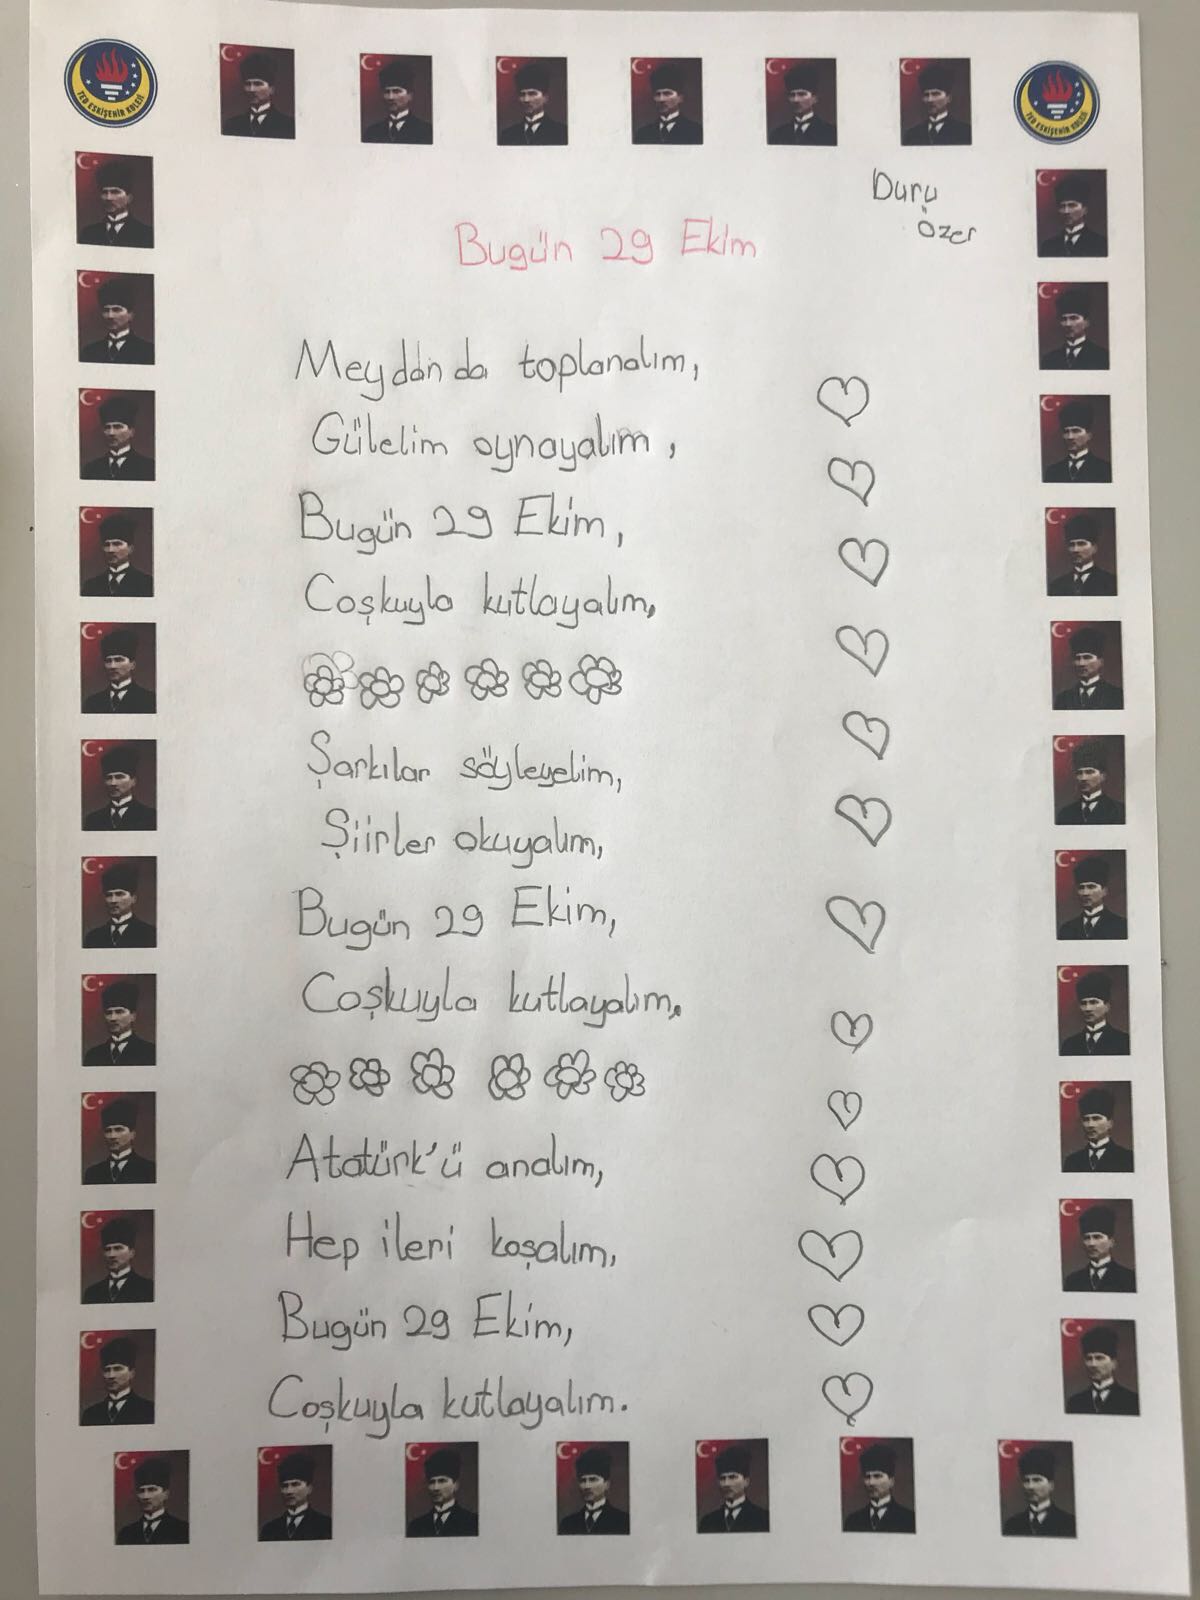 TED ESKİŞEHİR KOLEJİ
TED ESKİŞEHİR KOLEJİ
Duru
Özer
Bugün 29 Ekim
Meydan da toplanalım,
Gülelim oynayalım,
Bugün 29 Ekim,
Coşkuyla kutlayalım,
Şarkılar söyleyelim,
Şiirler okuyalım,
Bugün 29 Ekim,
Coşkuyla kutlayalım.
Atatürk'ü analım,
Hep ileri koşalım,
Bugün 29 Ekim,
Coşkuyla kutlayalım.